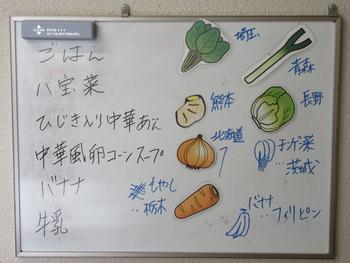 ごはん
八宝菜
ひじき入り中華あえ
中華風卵コーンスープ
バナナ
牛乳
埼玉
青森
熊本
長野
北海道
チンゲン菜
…茨城
もやし
…栃木
バナナ
…フィリピン